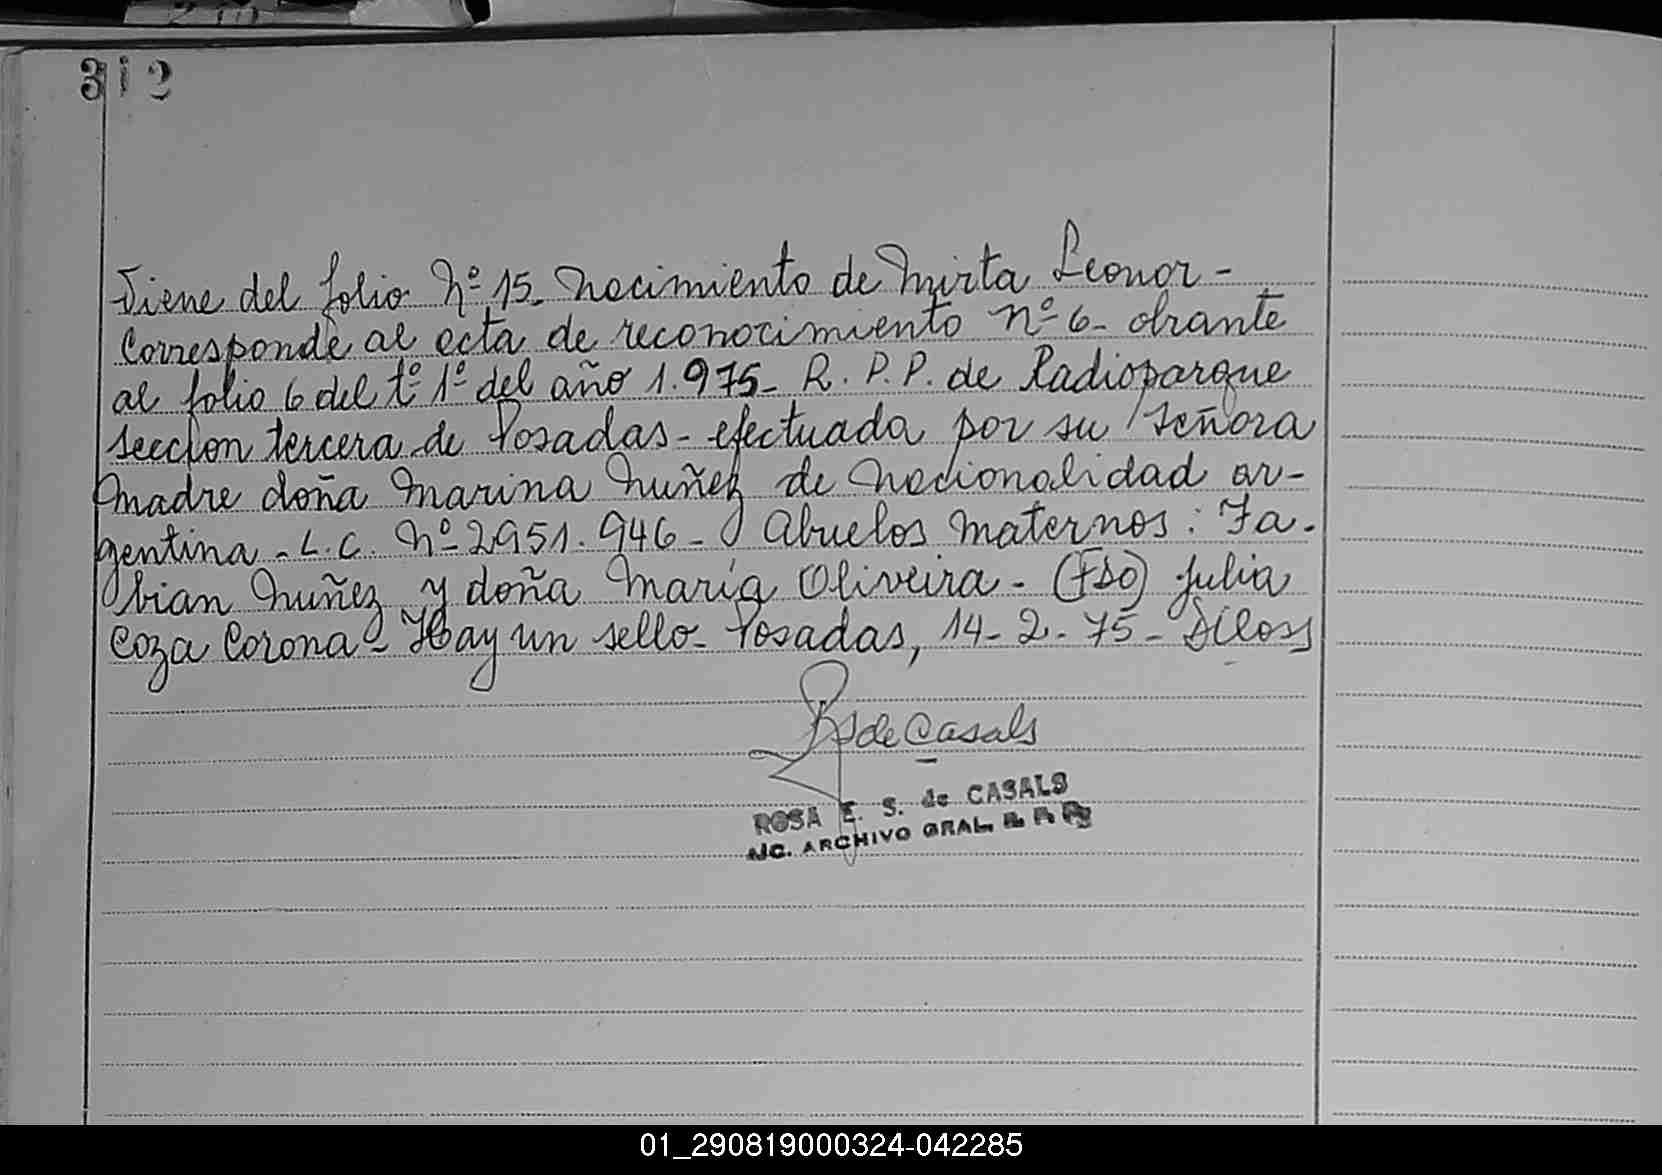 312
Viene del folio Nº 15. Nacimiento de Mirta Leonor -
Corresponde al acta de reconocimiento nº 6 - obrante
al folio 6 del tº 1º del año 1.975 - R. P. P. de Radioparque
seccion tercera de Posadas - efectuada por su señora
madre doña Marina Nuñez de nacionalidad ar-
gentina - L.C. Nº 2951.946 - Abuelos maternos: Fa-
bian Nuñez y doña María Oliveira - (Fdo) Julia
Coza Corona - Hay un sello - Posadas, 14-2-75 -
de Casals
ROSA E. S. de CASALS
ARCHIVO GRAL. R. P. P.
01_290819000324-042285